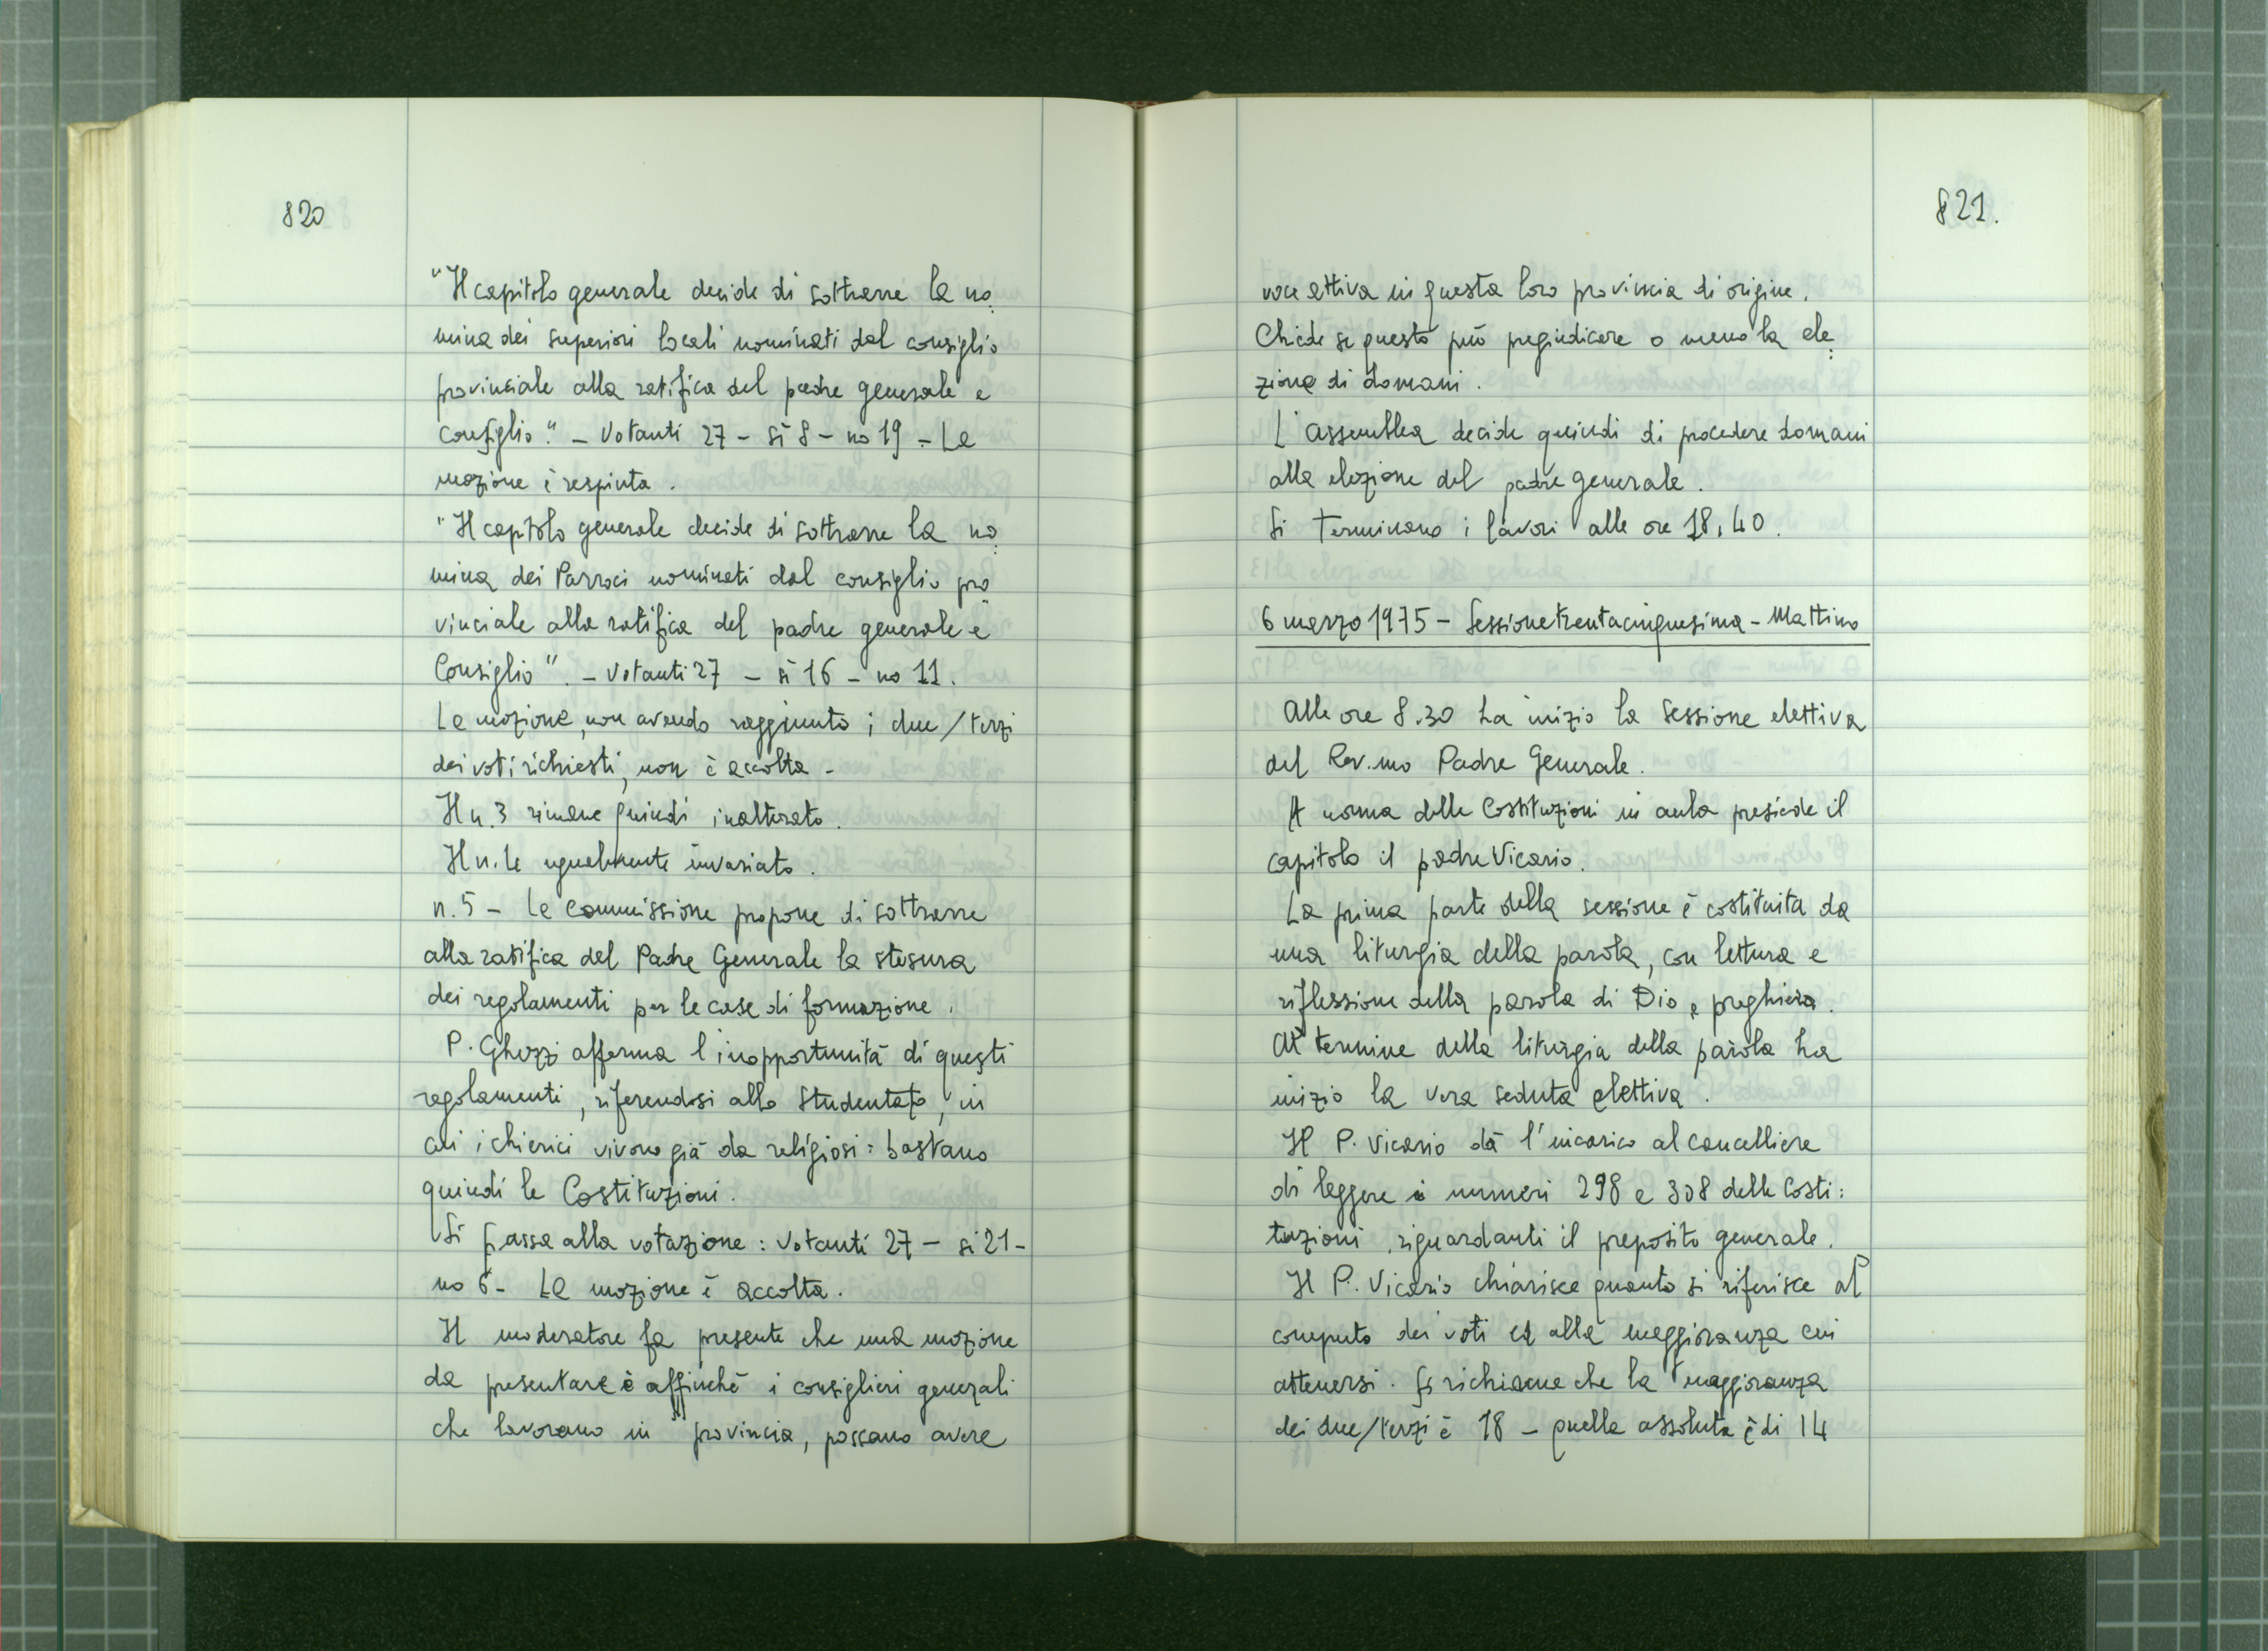 820
"Il capitolo generale decide di sottrarre la no:
mina dei superiori locali nominati dal consiglio
provinciale alla ratifica del padre generale e
consiglio". - Votanti 27 - sì 8 - no 19 - La
mozione è respinta.
"Il capitolo generale decide di sottrarre la no:
mina dei Parroci nominati dal consiglio pro
vinciale alla ratifica del padre generale e
Consiglio". - Votanti 27 - sì 16 - no 11.
La mozione, non avendo raggiunto i due/terzi
dei voti richiesti, non è accolta -
Il n. 3 rimane quindi inalterato.
Il n. 4 ugualmente invariato.
n. 5 - La commissione propone di sottrarre
alla ratifica del Padre Generale la stesura
dei regolamenti per le case di formazione.
P. Ghezzi afferma l'inopportunità di questi
regolamenti, riferendosi allo Studentato, in
cui i chierici vivono già da religiosi: bastano
quindi le Costituzioni.
Si passa alla votazione: Votanti 27 - si 21 -
no 6 - La mozione è accolta.
Il moderatore fa presente che una mozione
da presentare è affinché i consiglieri generali
che lavorano in provincia, possano avere
821.
voce attiva in questa loro provincia di origine.
Chiede se questo può pregiudicare o meno la ele:
zione di domani.
L'assemblea decide quindi di procedere domani
alla elezione del padre generale.
Si terminano i lavori alle ore 18,40.
6 marzo 1975 - Sessione trentacinquesima - Mattino
Alle ore 8.30 ha inizio la Sessione elettiva
del Rev.mo Padre Generale.
A norma delle Costituzioni in aula presiede il
capitolo il padre Vicario.
La prima parte della sessione è costituita da
una liturgia della parola, con lettura e
riflessione della parola di Dio e preghiera.
Al termine della liturgia della parola ha
inizio la vera seduta elettiva.
Il P. Vicario dà l'incarico al cancelliere
di leggere i numeri 298 e 308 delle Costi:
tuzioni, riguardanti il preposito generale.
Il P. Vicario chiarisce quanto si riferisce al
computo dei voti ed alla maggioranza cui
attenersi. Si richiama che la maggioranza
dei due/terzi è 18 - quella assoluta è di 14